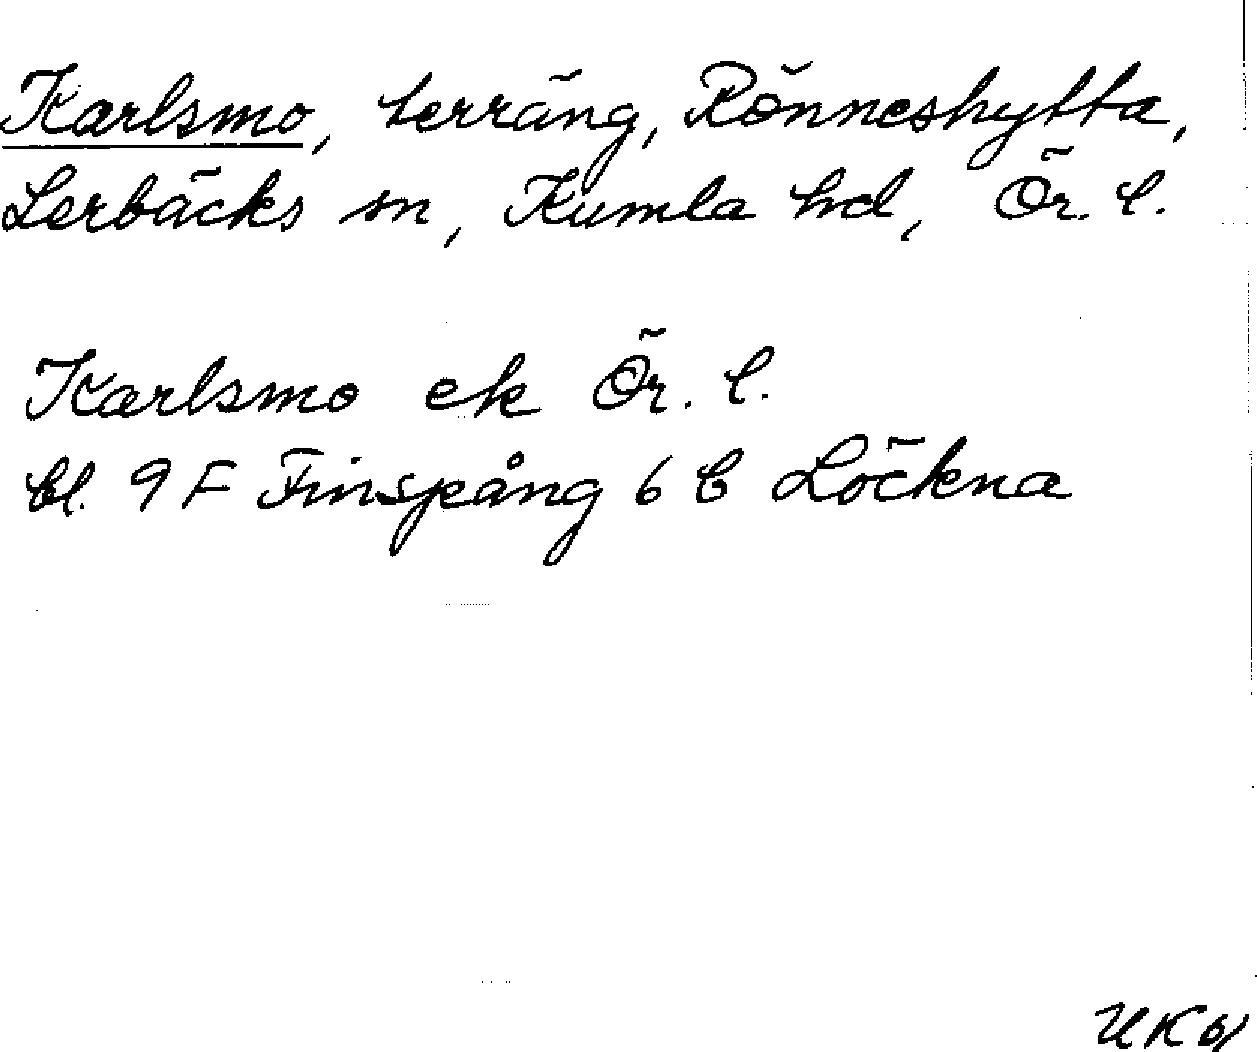 Karlsmo, terräng, Rönneshytta,
Lerbäcks sn, Kumla hd, Ör. l.
Karlsmo ek Ör. l.
bl. 9 F Finspång 6 b Löckna